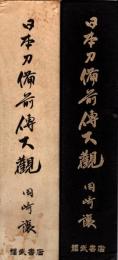 日本刀備前傳大觀
岡崎讓
福武書店
日本刀備前傳大觀
岡崎讓
福武書店